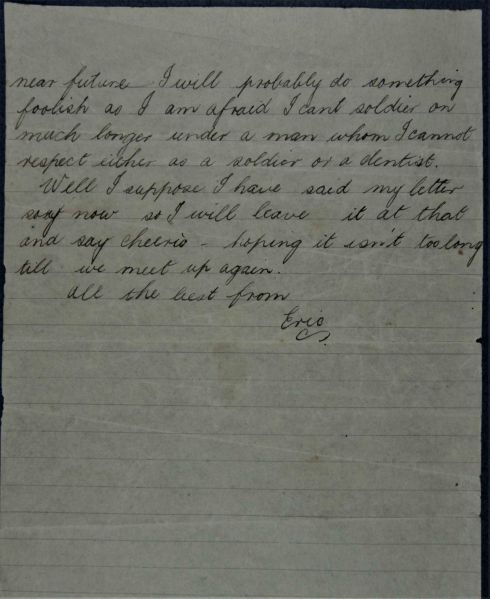 near future I will probably do something
foolish as I am afraid I cant soldier on
much longer under a man whom I cannot
respect either as a soldier or a dentist.
Well I suppose I have said my letter
now so I will leave it at that
and say cheerio - hoping it isn't too long
till we meet up again.
All the best from
Eric